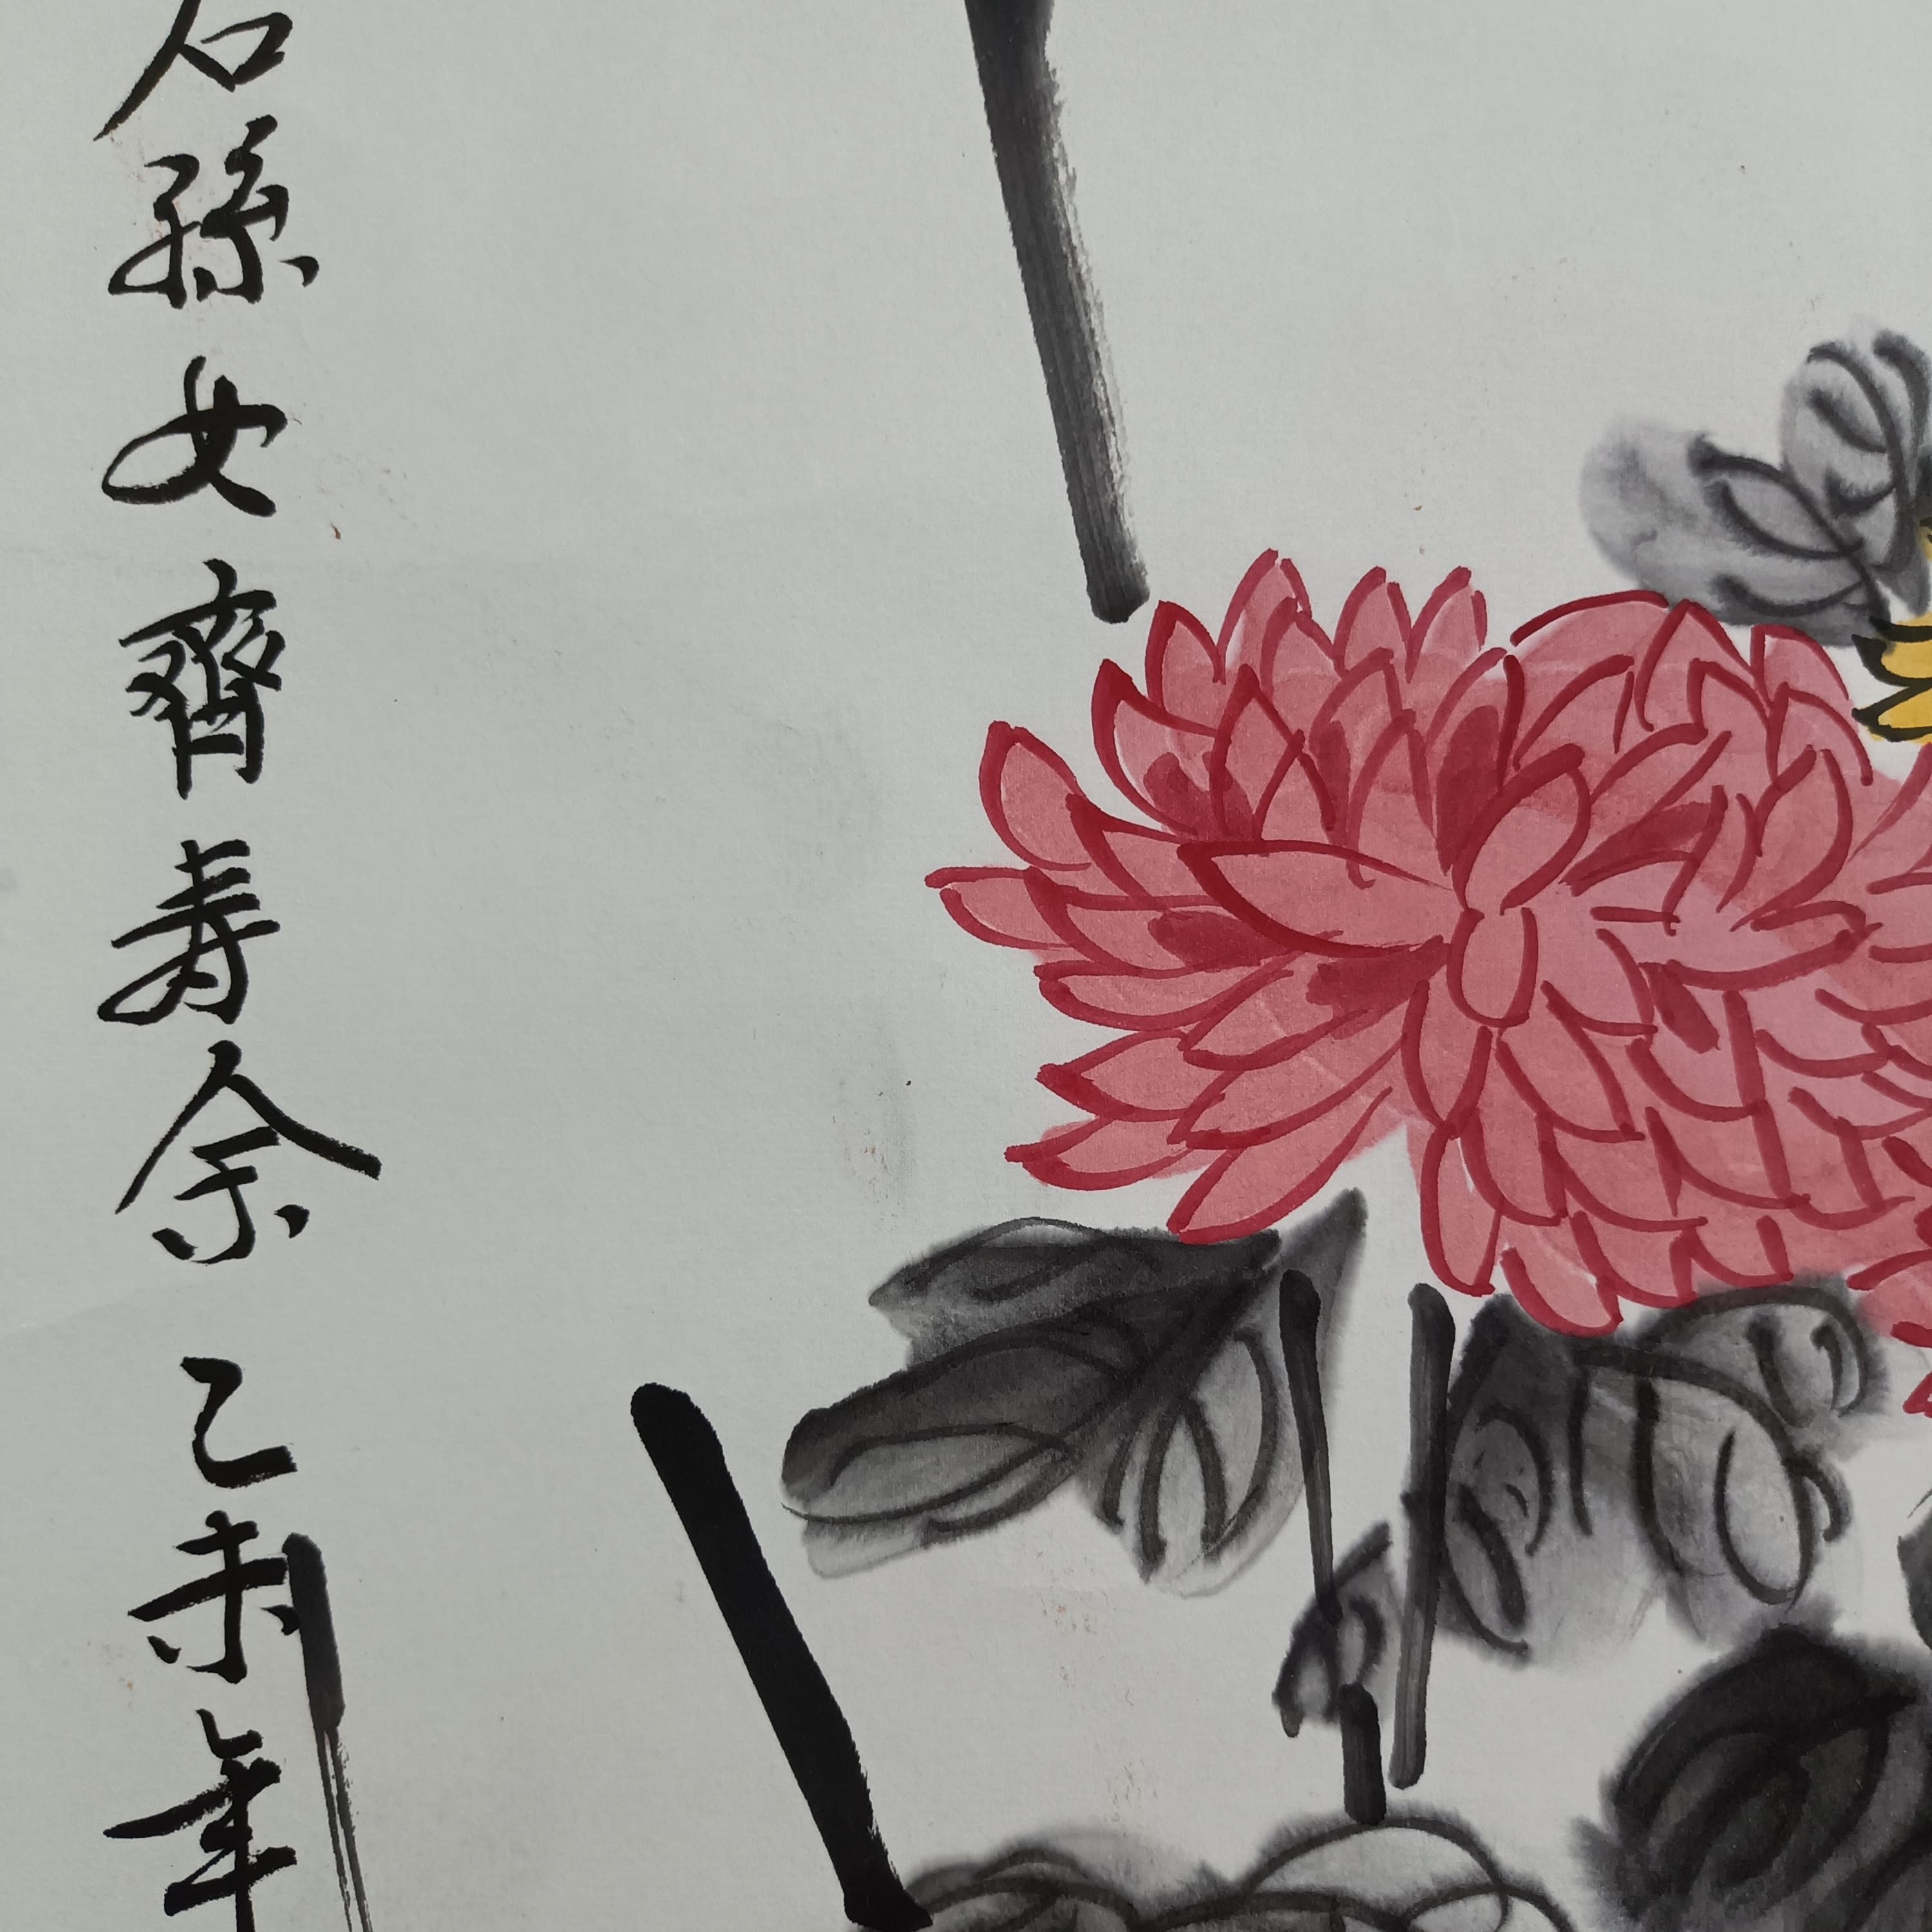 石孫女齊壽余乙未年